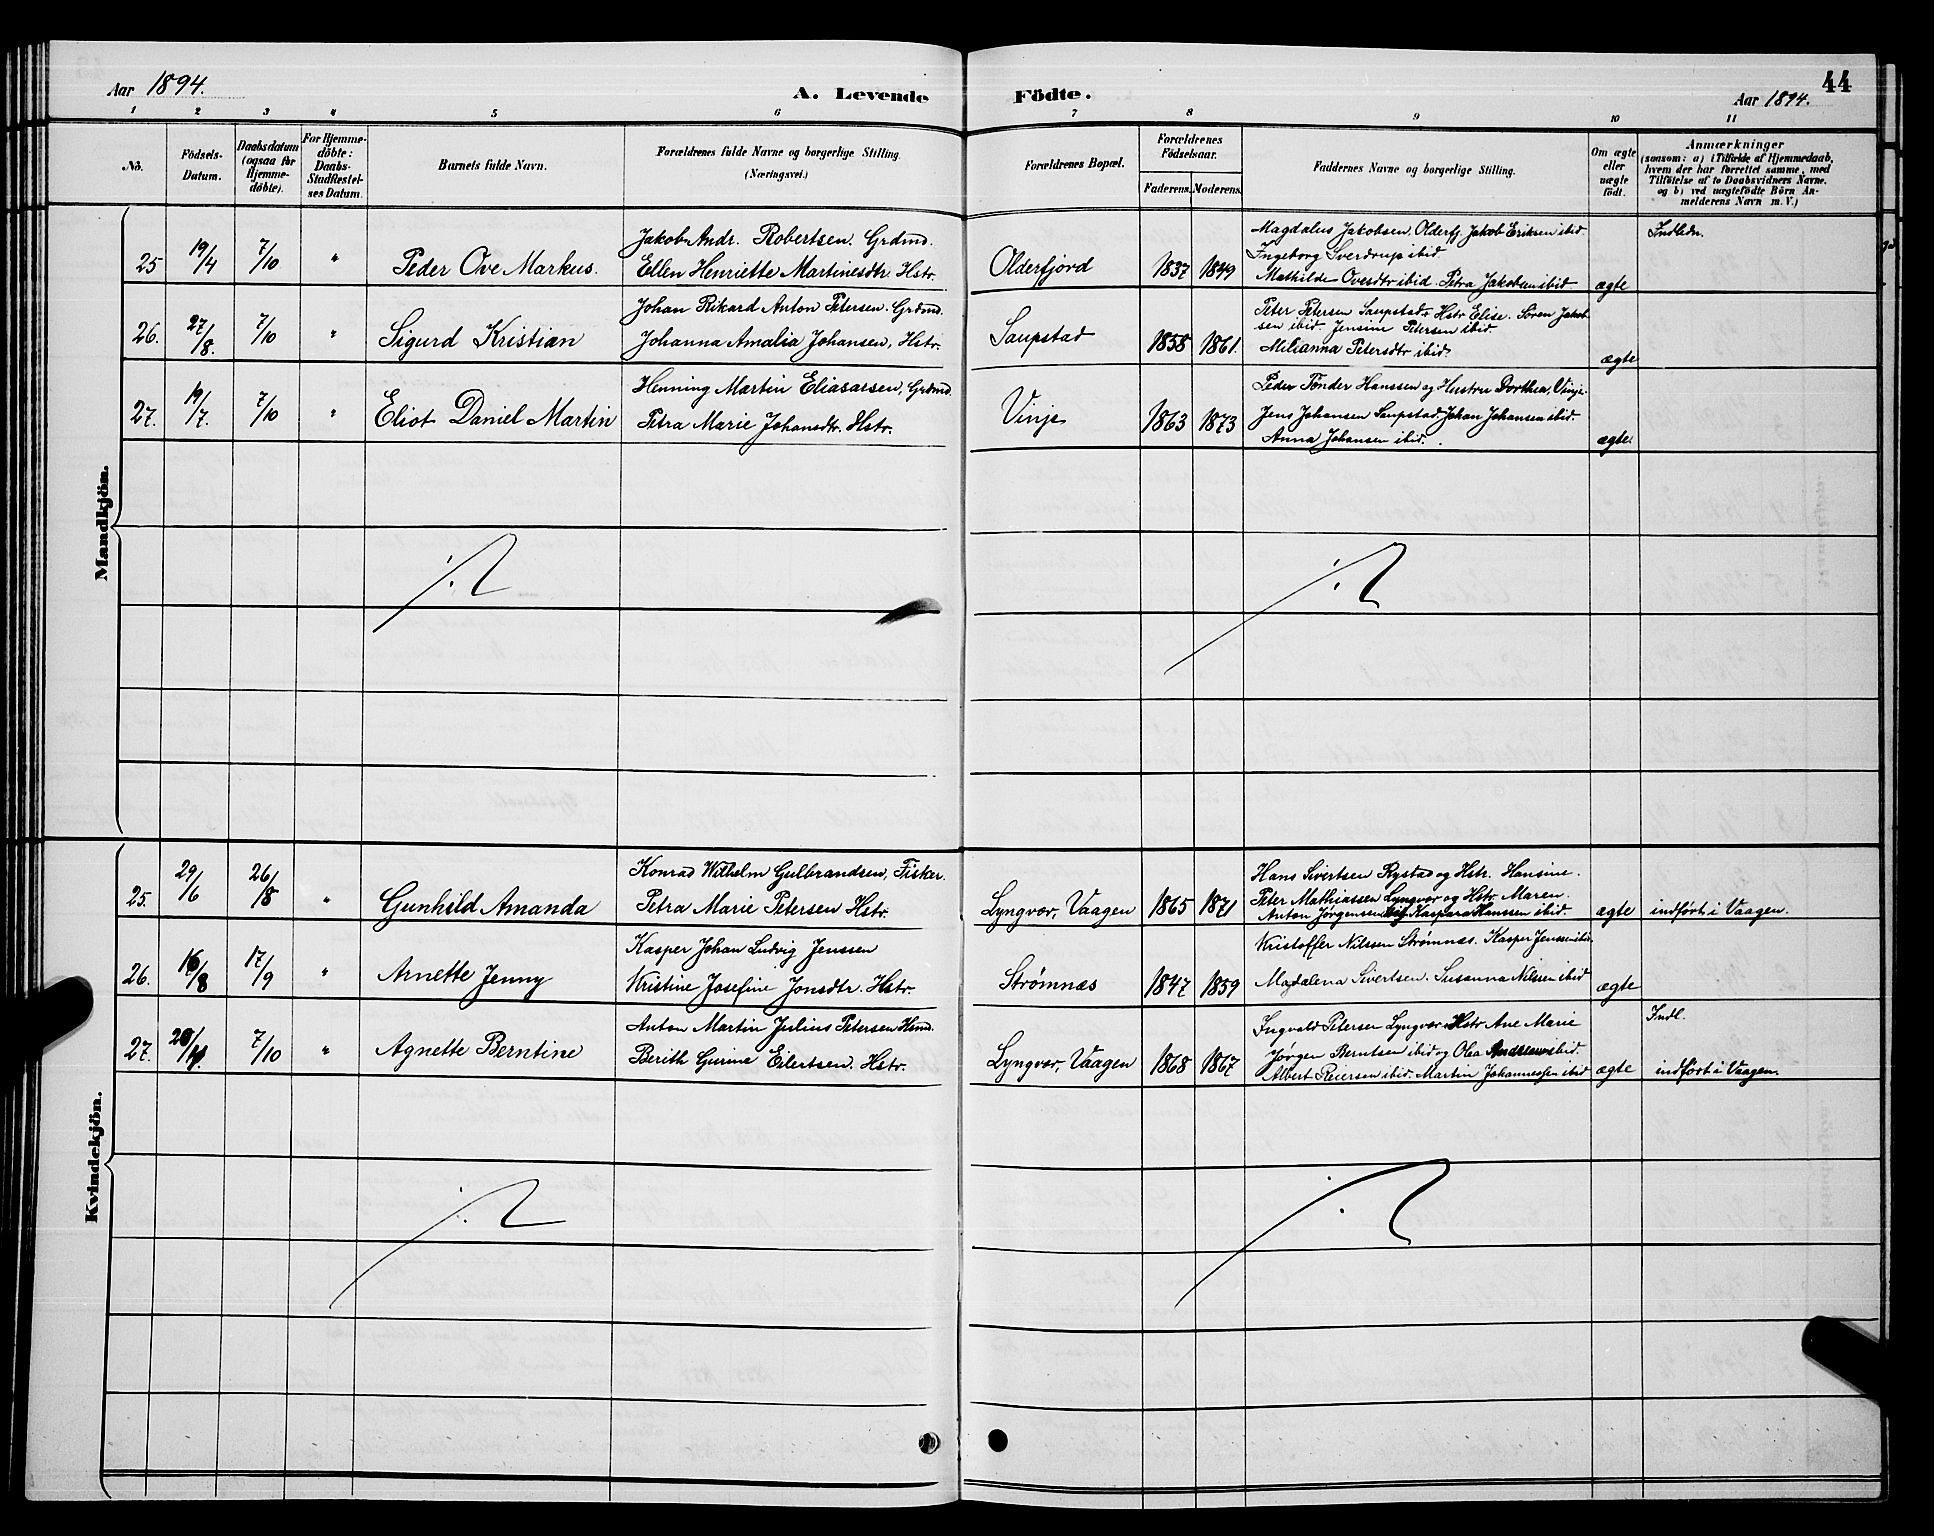 Aar 1894. A. Levende Födte. 44
Aar 1894.
1 2 3 4 5 6 7 8 9 10 11
No. Födsels-Datum. Daabsdatum (ogsaa for Hjemme-döbte). For Hjemme-döbte: Daabs-Stadfæstel-ses Datum. Barnets fulde Navn. Forældrenes fulde Navne og borgerlige Stilling (Næringsvei.) Forældrenes Bopæl. Forældrenes Födselsaar. Faderens. Moderens. Faddernes Navne og borgerlige Stilling. Om ægte eller uægte födt. Anmærkninger (saasom: a) i Tilfælde af Hjemmedaab, hvem der har forrettet samme, med Tilföielse af to Daabsvidners Navne, og b) ved uægtefödte Börn Anmelderens Navn m. V.)
Mandkjön.
Jakob Andr. Robertsen. Grdmd. Magdalus Jakobsen, Olderfj. Jakob Eriksen ibid. Indledn.
Ingeborg Sverdrup ibid
25 19/4 7/10 " Peder Ove Markus. Ellen Henriette Martinesdtr. Hstr. Olderfjord 1837 1849 Mathilde Ovesdtr ibid. Petra Jakobsen ibid. ægte
Johan Rikard Anton Petersen. Grdmd. Peter Petersen Saupstad, Hstr Elise. Sören Jakob-
sen ibid. Jensine Petersen ibid.
26. 27/8. 7/10 " Sigurd Kristian Johanna Amalia Johansen, Hstr. Saupstad 1858 1861. Milianna Petersdtr ibid. ægte
Henning Martin Eliasarsen, Grdmd. Peder Tönder Hanssen og Hustru Dorthea, Vinje.
27. 19/7. 7/10 " Eliot Daniel Martin Petra Marie Johansdtr. Hstr. Vinje 1863 1873 Jens Johansen Saupstad. Johan Johansen ibid.
Anna Johansen ibid. ægte.
Kvindekjön.
Konrad Wilhelm Gulbrandsen, Fisker. Hans Sivertsen Rystad og Hstr. Hansine.
Peter Mathiassen Lyngvær og Hstr Maren.
25. 29/6 26/8 " Gunhild Amanda Petra Marie Petersen Hstr. Lyngvær, Vaagen 1865 1871 Anton Jørgensen Kaspara Hanssen ibid. ægte indført i Vaagen.
Kasper Johan Ludvig Jenssen Kristoffer Nilssen Strømnæs. Kasper Jenssen ibid.
26. 16/8 17/9 " Arnette Jenny Kristine Josefine Jonsdtr. Hstr. Strømnæs 1847 1859 Magdalena Sivertsen. Susanna Nilssen ibid ægte
Anton Martin Julius Petersen Hsmd. Ingvald Petersen Lyngvær Hstr Ane Marie Indl.
Jörgen Berntsen ibid og Olea Andersen ibid.
27. 7/10 " Agnette Berntine Berith Gurine Eilertsen. Hstr. Lyngvær, Vaagen 1868 1867 Albert Reiersen ibid. Martin Johannessen ibid ægte indført i Vaagen.